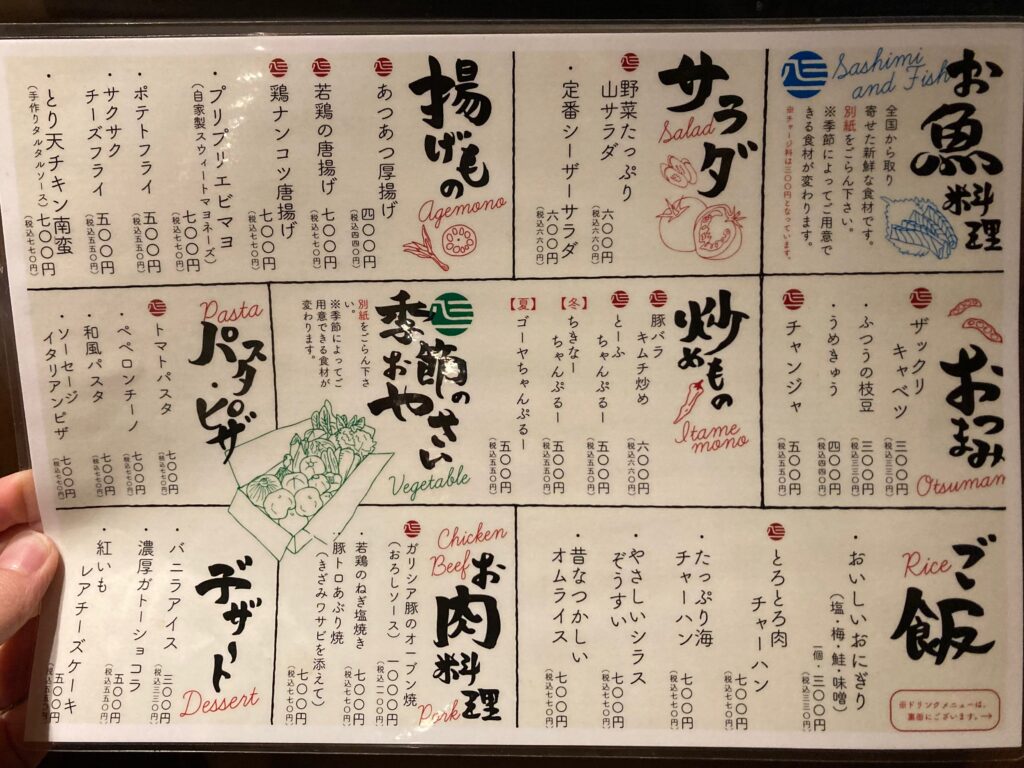 お魚料理
Sashimi and Fish
全国から取り
寄せた新鮮な食材です。
別紙をごらん下さい。
※季節によってご用意で
きる食材が変わります。
※チャージ料は三〇〇円となっています。
サラダ
Salad
野菜たっぷり
山サラダ
六〇〇円
(税込六六〇円)
・定番シーザーサラダ
六〇〇円
(税込六六〇円)
揚げもの
Agemono
あつあつ厚揚げ
四〇〇円
(税込四四〇円)
若鶏の唐揚げ
七〇〇円
(税込七七〇円)
鶏ナンコツ唐揚げ
七〇〇円
(税込七七〇円)
・プリプリエビマヨ
(自家製スウィートマヨネーズ)
七〇〇円
(税込七七〇円)
・ポテトフライ
五〇〇円
(税込五五〇円)
・サクサク
チーズフライ
五〇〇円
(税込五五〇円)
・とり天チキン南蛮
(手作りタルタルソース)
七〇〇円
(税込七七〇円)
おつまみ
Otsumam
ザックリ
キャベツ
三〇〇円
(税込三三〇円)
・ふつうの枝豆
三〇〇円
(税込三三〇円)
・うめきゅう
四〇〇円
(税込四四〇円)
チャンジャ
五〇〇円
(税込五五〇円)
炒めもの
Itame mono
豚バラ
キムチ炒め
六〇〇円
(税込六六〇円)
とーふ
ちゃんぷるー
五〇〇円
(税込五五〇円)
【冬】
ちきなー
ちゃんぷるー
五〇〇円
(税込五五〇円)
【夏】
ゴーヤちゃんぷるー
五〇〇円
(税込五五〇円)
季節のおやさい
Vegetable
別紙をごらん下さ
い。
※季節によってご
用意できる食材が
変わります。
パスタ・ピザ
Pasta
トマトパスタ
七〇〇円
(税込七七〇円)
・ペペロンチーノ
七〇〇円
(税込七七〇円)
・和風パスタ
七〇〇円
(税込七七〇円)
・ソーセージ
イタリアンピザ
七〇〇円
(税込七七〇円)
ご飯
Rice
・おいしいおにぎり
(塩・梅・鮭・味噌)
一個・三〇〇円
(税込三三〇円)
とろとろ肉
チャーハン
七〇〇円
(税込七七〇円)
・たっぷり海
チャーハン
七〇〇円
(税込七七〇円)
・やさしいシラス
ぞうすい
七〇〇円
(税込七七〇円)
・昔なつかしい
オムライス
七〇〇円
(税込七七〇円)
※ドリンクメニューは、
裏面にございます。→
お肉料理
Chicken
Beef
Pork
ガリシア豚のオーブン焼
(おろしソース)
一〇〇〇円
(税込一一〇〇円)
・若鶏のねぎ塩焼き
七〇〇円
(税込七七〇円)
・豚トロあぶり焼
(きざみワサビを添えて)
七〇〇円
(税込七七〇円)
デザート
Dessert
・バニラアイス
三〇〇円
(税込三三〇円)
・濃厚ガトーショコラ
五〇〇円
(税込五五〇円)
・紅いも
レアチーズケーキ
五〇〇円
(税込五五〇円)